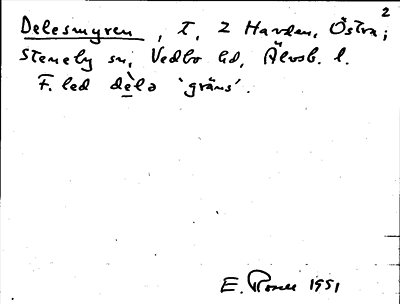 2
Delesmyren, t, 2 Harden, Östra;
Steneby sn, Vedbo hd, Älvsb. l.
F. led dèlə 'gräns'.
E. Rosell 1951